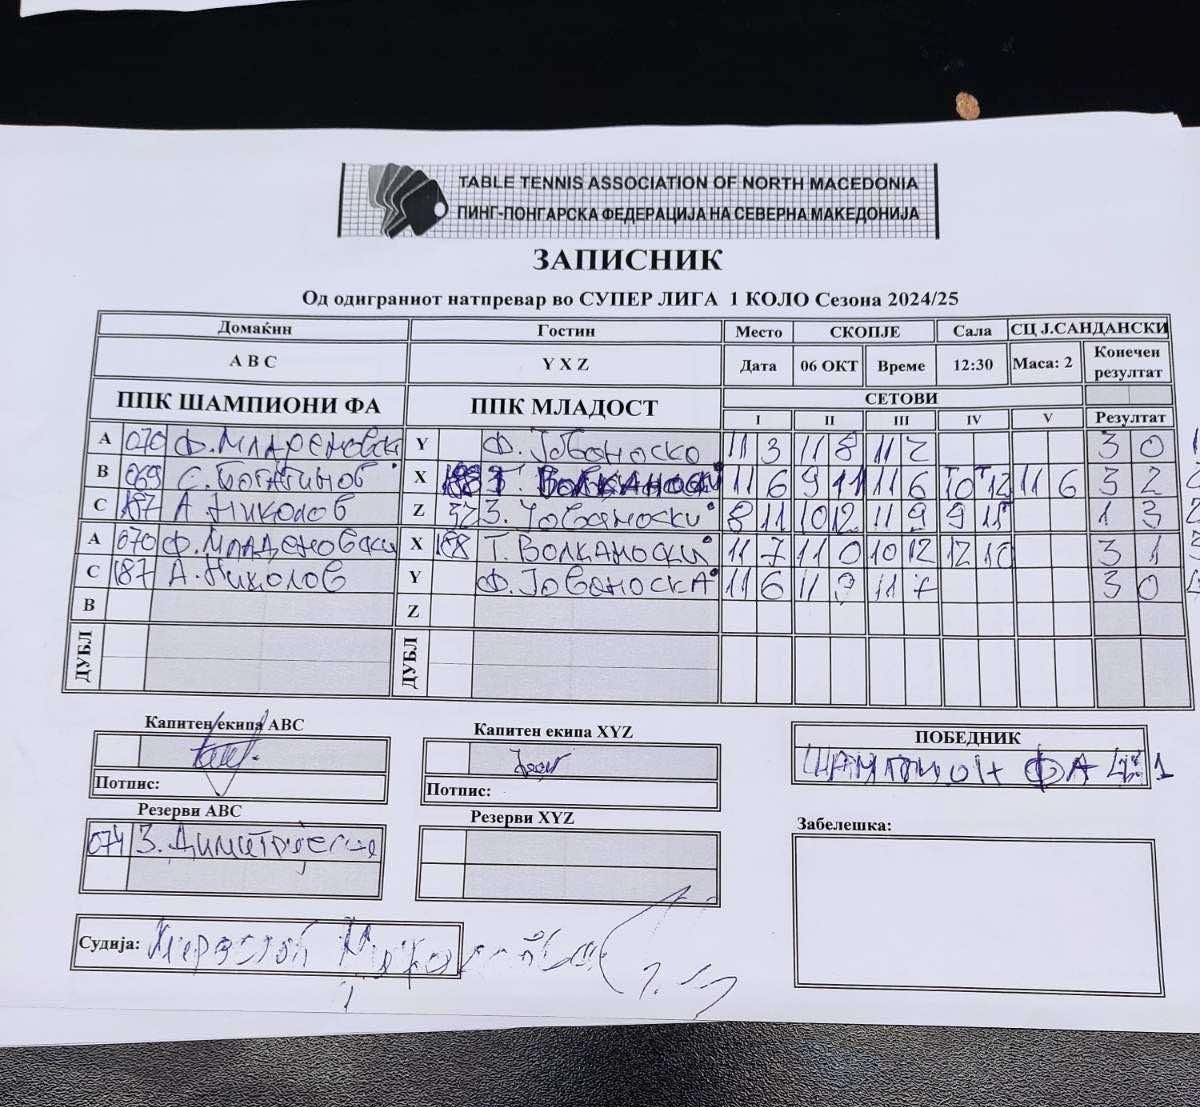 TABLE TENNIS ASSOCIATION OF NORTH MACEDONIA
ПИНГ-ПОНГАРСКА ФЕДЕРАЦИЈА НА СЕВЕРНА МАКЕДОНИЈА
ЗАПИСНИК
Од одиграниот натпревар во СУПЕР ЛИГА 1 КОЛО Сезона 2024/25
Домаќин Гостин Место СКОПЈЕ Сала СЦ Ј.САНДАНСКИ
A B C Y X Z Дата 06 ОКТ Време 12:30 Маса: 2 Конечен резултат
ППК ШАМПИОНИ ФА ППК МЛАДОСТ СЕТОВИ
I II III IV V Резултат
A 070 Ф. Y Ф. 11 3 11 8 11 2 3 0
B 069 С. Богатинов X Т. Волканоски 11 6 9 11 11 6 10 12 11 6 3 2
C 187 А. Николов Z 52 З. Јовановски 8 11 10 12 11 9 9 11 1 3
A 070 Ф. Младеновски X 188 Т. ВОЛКАНОСКИ 11 7 11 0 10 12 12 10 3 1
C 187 А. Николов Y Ф. 11 6 11 9 11 7 3 0
B Z
ДУБЛ ДУБЛ
Капитен екипа ABC Капитен екипа XYZ ПОБЕДНИК
ФА 1
Потпис: Потпис:
Резерви ABC Резерви XYZ Забелешка:
074 З.
Судија: